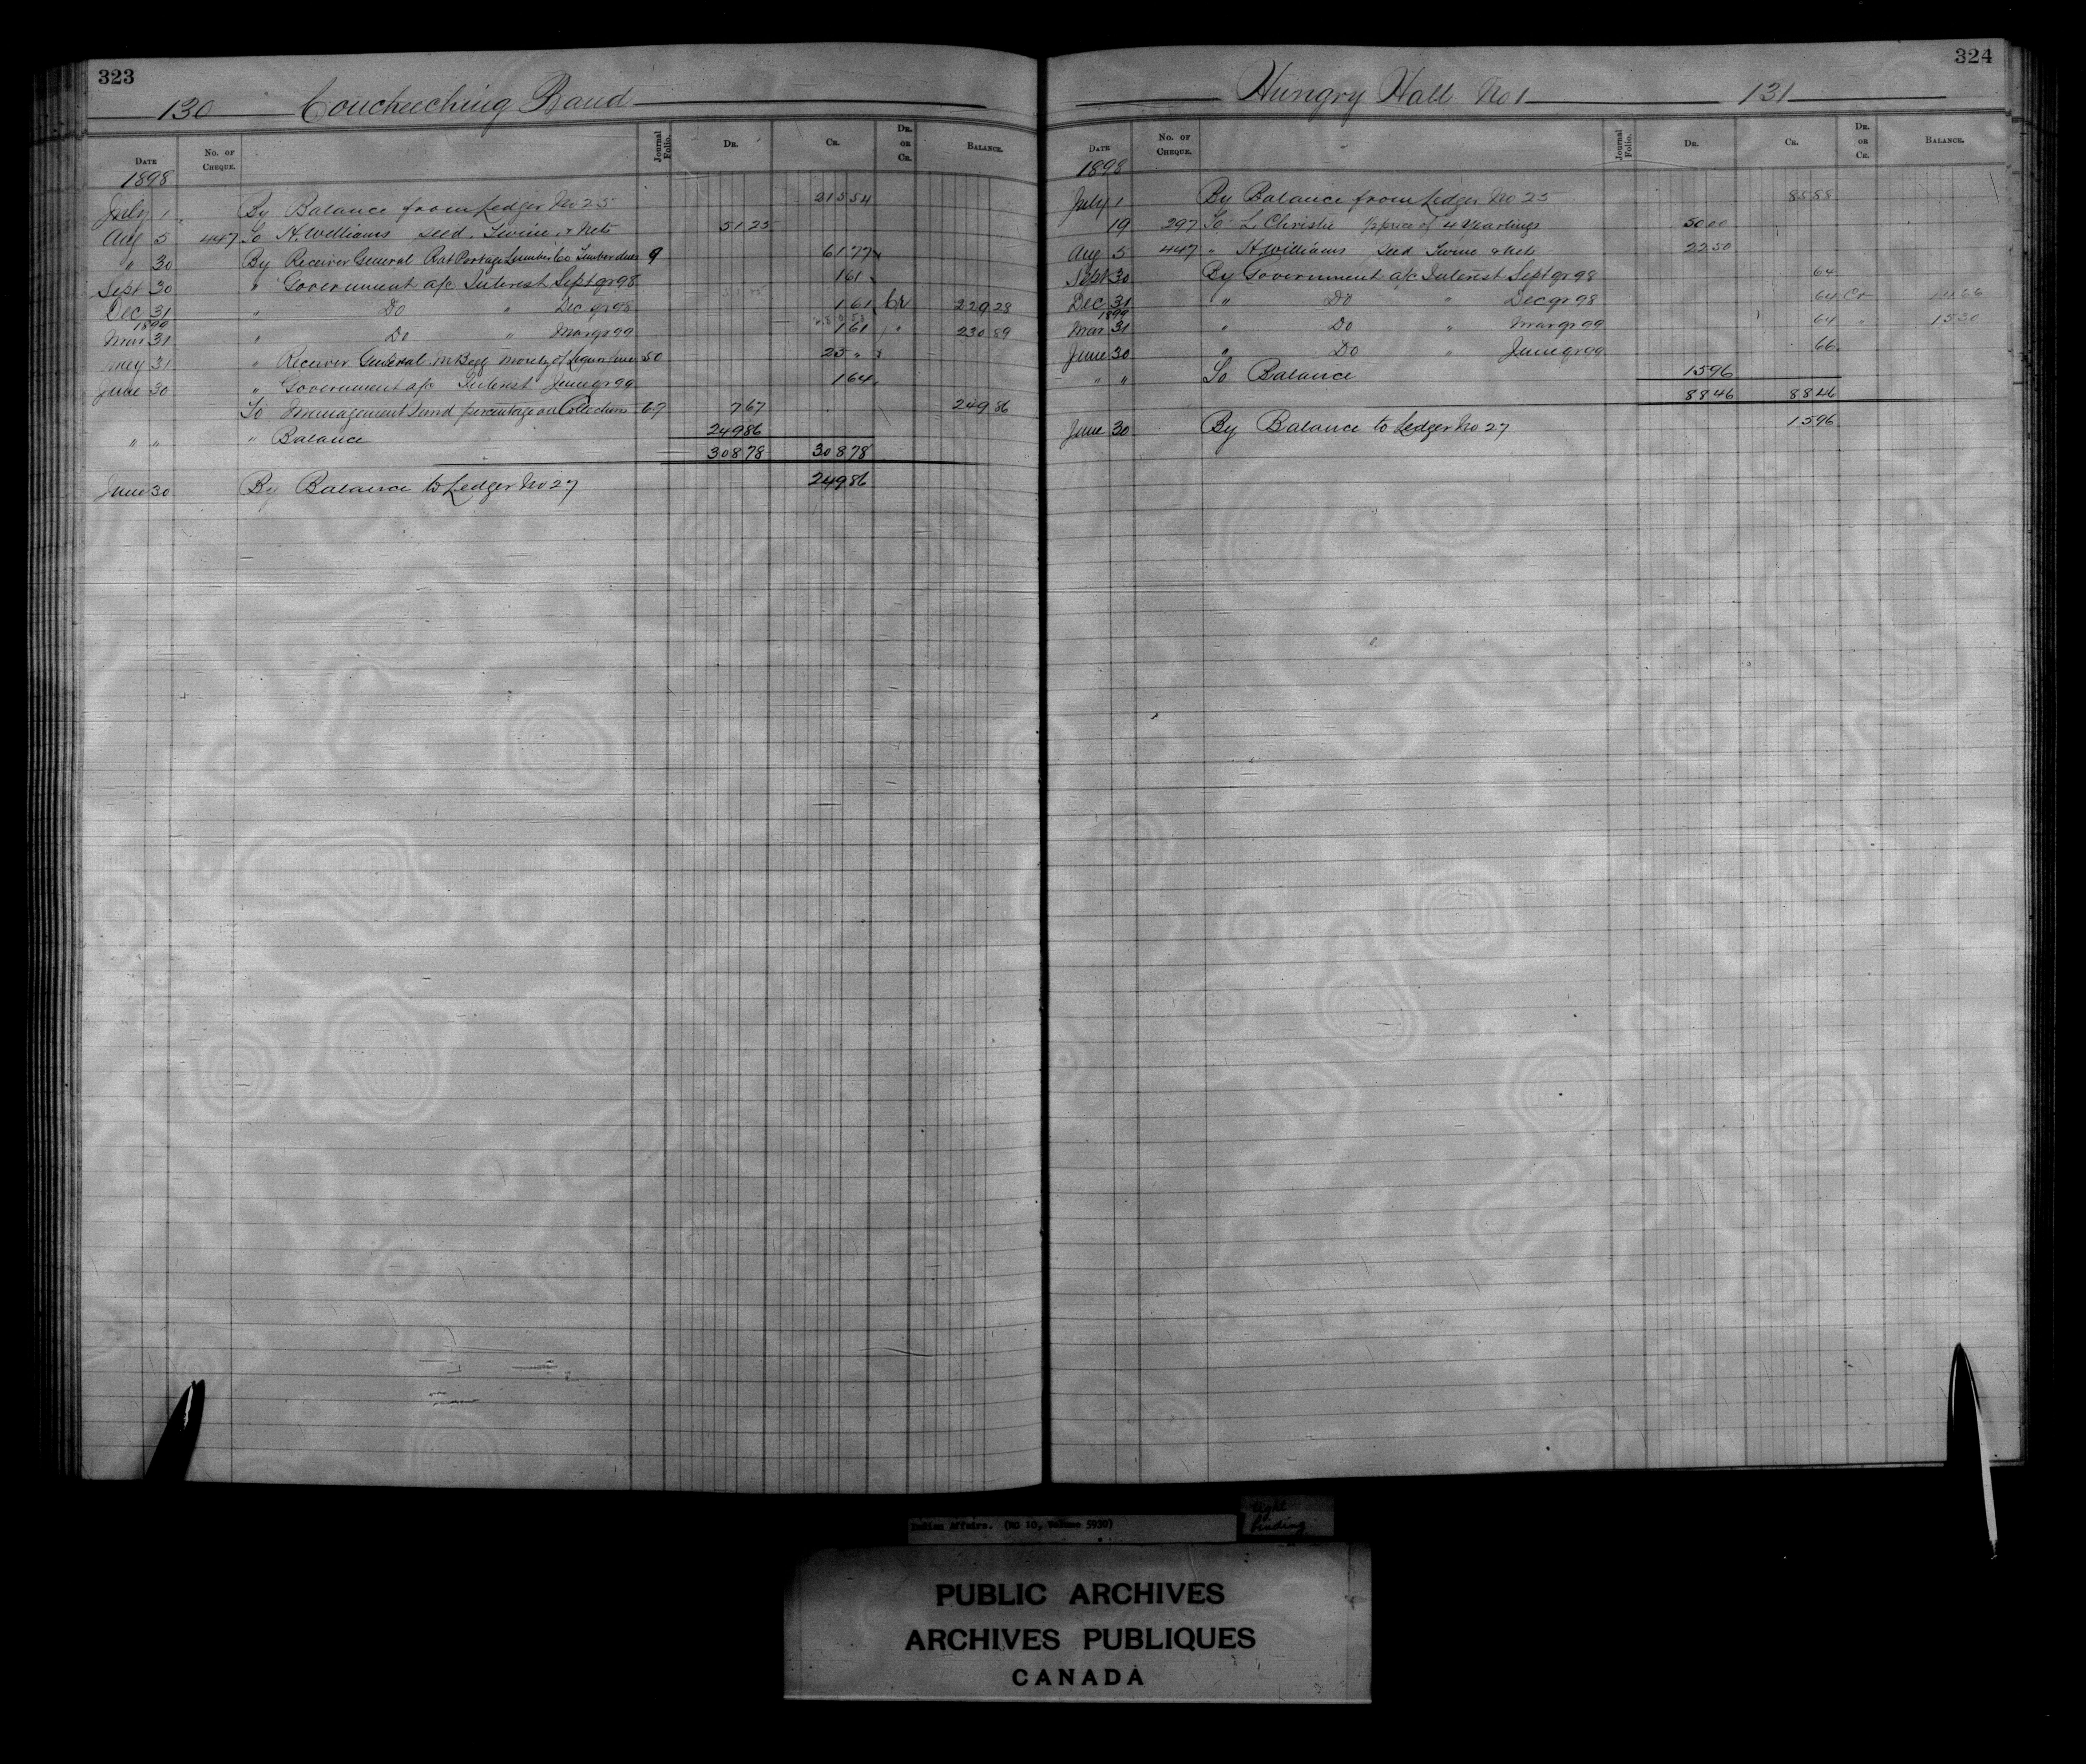 323
130 Coucheeching Band
DATE No. OF CHEQUE. Journal Folio. DR. CR. DR. OR CR. BALANCE.
1898
July 1 By Balance from Ledger No 25 215 54
Aug 5 447 To H. Williams Seed, Twine & Nets 51 25
" 30 By Receiver General Rat Portage Lumber Co Timber dues 9 61 77
Sept 30 " Government a/c Interest Sept qr 98 1 61
Dec 31 " Do " Dec qr 98 1 61 Cr 229 28
1899
Mar 31 " Do " Mar qr 99 1 61 " 230 89
May 31 " Receiver General. M Begg Moiety of Liquor fines 50 25 "
June 30 " Government a/c Interest June qr 99 1 64
To Management Fund percentage on Collections 67 7 67 249 86
" " " Balance 249 86
308 78 308 78
June 30 By Balance to Ledger No 27 249 86
324
Hungry Hall No 1 131
DATE No. OF CHEQUE. Journal Folio. DR. CR. DR. OR CR. BALANCE.
1898
July 1 By Balance from Ledger No 25 85 88
19 297 To L. Christie ½ price of 4 Yearlings 50 00
Aug 5 447 " H. Williams Seed Twine & Nets 22 50
Sept 30 By Government a/c Interest Sept qr 98 64
Dec 31 " Do " Dec qr 98 64 Cr 14 66
1899
Mar 31 " Do " Mar qr 99 64 " 15 30
June 30 " Do " June qr 99 66
" " To Balance 15 96
88 46 88 46
June 30 By Balance to Ledger No 27 15 96
Indian Affairs. (RG 10, Volume 5930)
tight
binding
PUBLIC ARCHIVES
ARCHIVES PUBLIQUES
CANADA